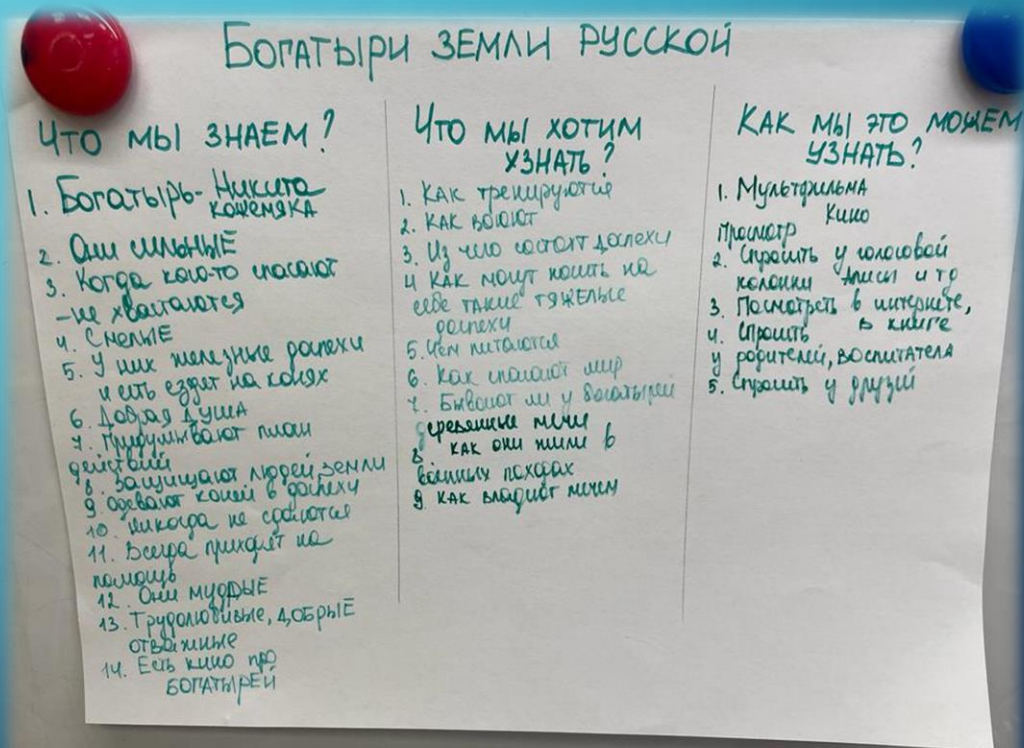 БОГАТЫРИ ЗЕМЛИ РУССКОЙ
ЧТО МЫ ЗНАЕМ?
1. БОГАТЫРЬ- НИКИТА
КОЖЕМЯКА
2. Они сильныЕ
3. Когда кого-то спасают
-не хвастаются
4. СМЕЛЫЕ
5. У них железные доспехи
и есть ездят на конях
6. Добрая душа
7. Придумывают план
действий
8. Защищают людей, земли
9. одевают коней в доспеху
10. никогда не сдаются
11. Всегда приходят на
помощь
12. Они мудрыЕ
13. Трудолюбивые, ДОБРЫЕ
отважные
14. Есть кино про
БОГАТЫРЕЙ
ЧТО МЫ ХОТИМ
УЗНАТЬ?
1. КАК тренируются
2. КАК воюют
3. Из чего состоят доспехи
4 КАК могут носить на
себе такие тяжелые
доспехи
5. Чем питаются
6. Как спасают мир
7. Бывают ли у богатырей
деревянные мечи
8 КАК они жили в
военных походах
9. КАК владеют мечем
КАК МЫ ЭТО МОЖЕМ
УЗНАТЬ?
1. Мультфильма
Кино
Просмотр
2. Спросить у голосовой
колонки Алисы и тд
3. Посмотреть в интернете,
в книге
4. Спросить
у родителей, ВОСПИТАТЕЛА
5. Спросить у друзей